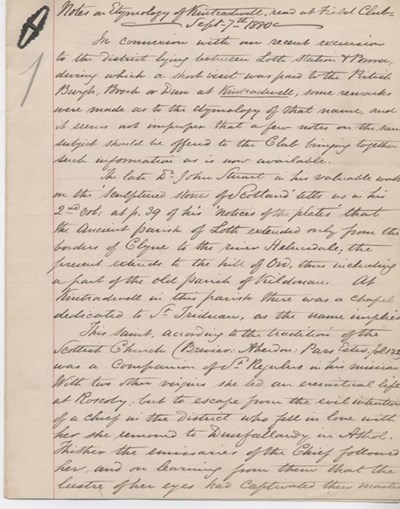 Notes on Etymology of Kintradwell, read at Field Club
Sept. 7th 1880
In connexion with our recent excursion
to the district lying between Loth Station & Brora,
during which a short visit was paid to the Pictish
Burgh, Broch or Dun at Kintradwell, some remarks
were made as to the etymology of that name, and
it seems not improper that a few notes on the same
subject should be offered to the Club bringing together
such information as is now available.
The late Dr. John Stuart in his valuable work
on the 'Sculptured stones of Scotland' tells us in his
2nd vol: at p. 39 of his 'Notices of the plates' that
the Ancient parish of Loth extended only from the
borders of Clyne to the river Helmsdale; the
present extends to the hill of Ord, thus including
a part of the old parish of Kildonan. At
Kintradwell in this parish there was a chapel
dedicated to St. Triduan, as the name implies
This saint, according to the tradition of the
Scottish Church (Breviar: Aberdon: Pars Estiv, fol 122
was a Companion of St. Regulus in his mission
With two other virgins she led an eremitical life
at Roscoby; but to escape from the evil intention
of a chief in the district who fell in love with
her she removed to Dunfallandy in Athol.
Thither the emissaries of the Chief followed
her, and on learning from them that the
lustre of her eyes had captivated their master